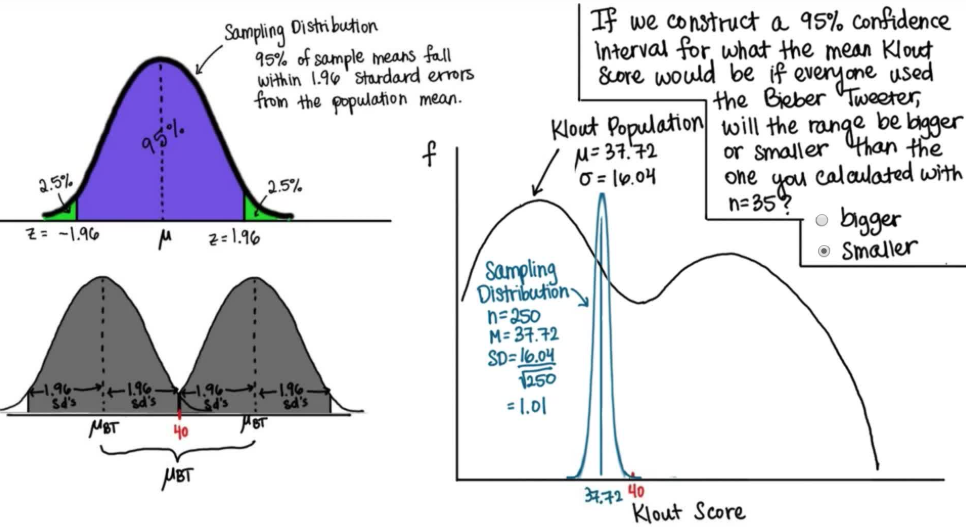 Sampling Distribution
95% of sample means fall
within 1.96 standard errors
from the population mean.
95%
2.5%
2.5%
z = -1.96
μ
z = 1.96
1.96
sd's
1.96
sd's
1.96
sd's
1.96
sd's
μBT
40
μBT
μBT
If we construct a 95% confidence
interval for what the mean Klout
Score would be if everyone used
the Bieber Tweeter,
will the range be bigger
or smaller than the
one you calculated with
n=35?
bigger
smaller
f
Klout Population
μ = 37.72
σ = 16.04
Sampling
Distribution
n=250
M=37.72
SD=16.04
√250
=1.01
37.72 40
Klout Score